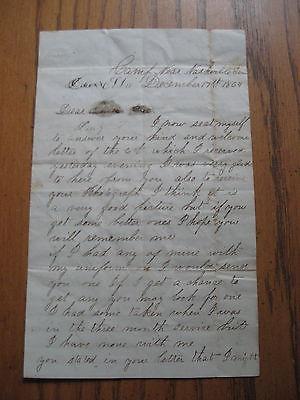 Camp near Nashville Tenn
December 11th 1864
Dear
I now seat myself
to answer your kind and welcome
letter of the which I received
yesterday evening I was very glad
to here from you also to receive
your Photograph I think it is
a very good picture but if you
get some better ones I hope you
will remember me
if I had any of mine with
my uniform I would send
you one If I get a chance to
get any you may look for one
I had some taken when I was
in the three month service but
I have none with me
you stated in your letter that I might